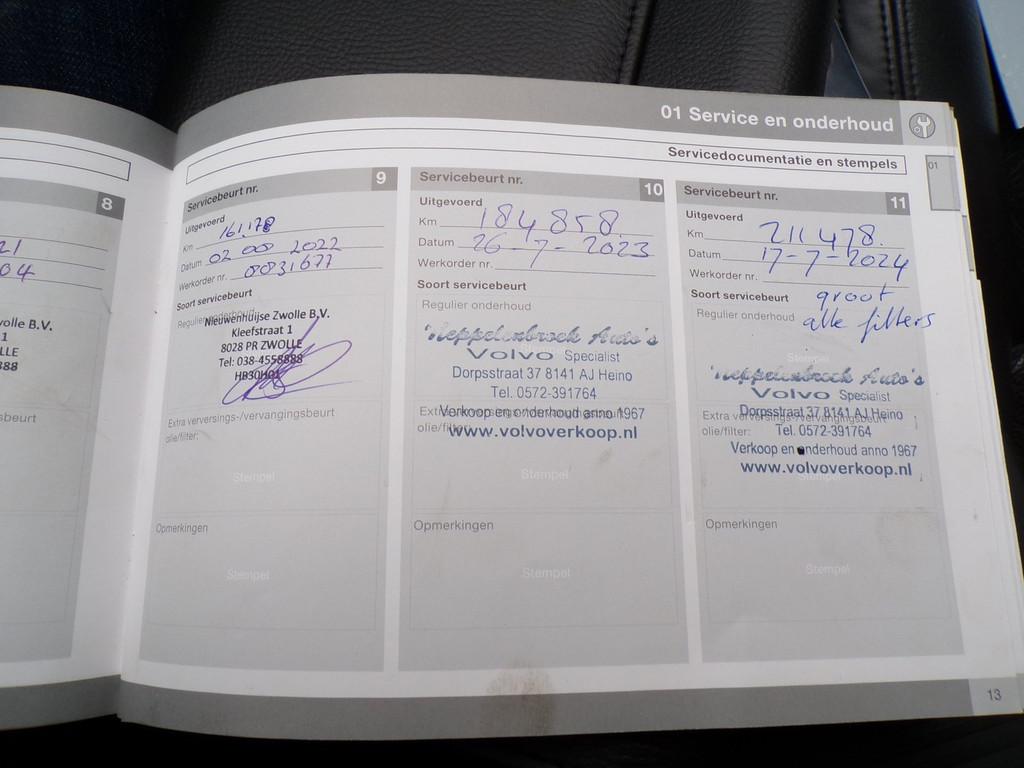 01 Service en onderhoud
Servicedocumentatie en stempels
01
8
21
04
volle B.V.
1
LLE
388
beurt
Servicebeurt nr. 9
Uitgevoerd
Km 161.178
Datum 02 008 2022
Werkorder nr. 00031677
Soort servicebeurt
Regulier onderhoud
Nieuwenhuijse Zwolle B.V.
Kleefstraat 1
8028 PR ZWOLLE
Tel: 038-4558888
HB30H01
Extra verversings-/vervangingsbeurt
olie/filter:
Stempel
Opmerkingen
Stempel
Servicebeurt nr. 10
Uitgevoerd
Km 184 858.
Datum 26-7-2023
Werkorder nr.
Soort servicebeurt
Regulier onderhoud
Heppelenbroek Auto's
Volvo Specialist
Dorpsstraat 37 8141 AJ Heino
Tel. 0572-391764
Verkoop en onderhoud anno 1967
olie/filter:
www.volvoverkoop.nl
Stempel
Opmerkingen
Stempel
Servicebeurt nr. 11
Uitgevoerd
Km 211 478.
Datum 17-7-2024
Werkorder nr.
Soort servicebeurt groot
Regulier onderhoud alle filters
Stempel
Heppelenbroek Auto's
Volvo Specialist
Dorpsstraat 37 8141 AJ Heino
Extra verversings-/vervangingsbeurt
olie/filter: Tel. 0572-391764
Verkoop en onderhoud anno 1967
www.volvoverkoop.nl
Stempel
Opmerkingen
Stempel
13